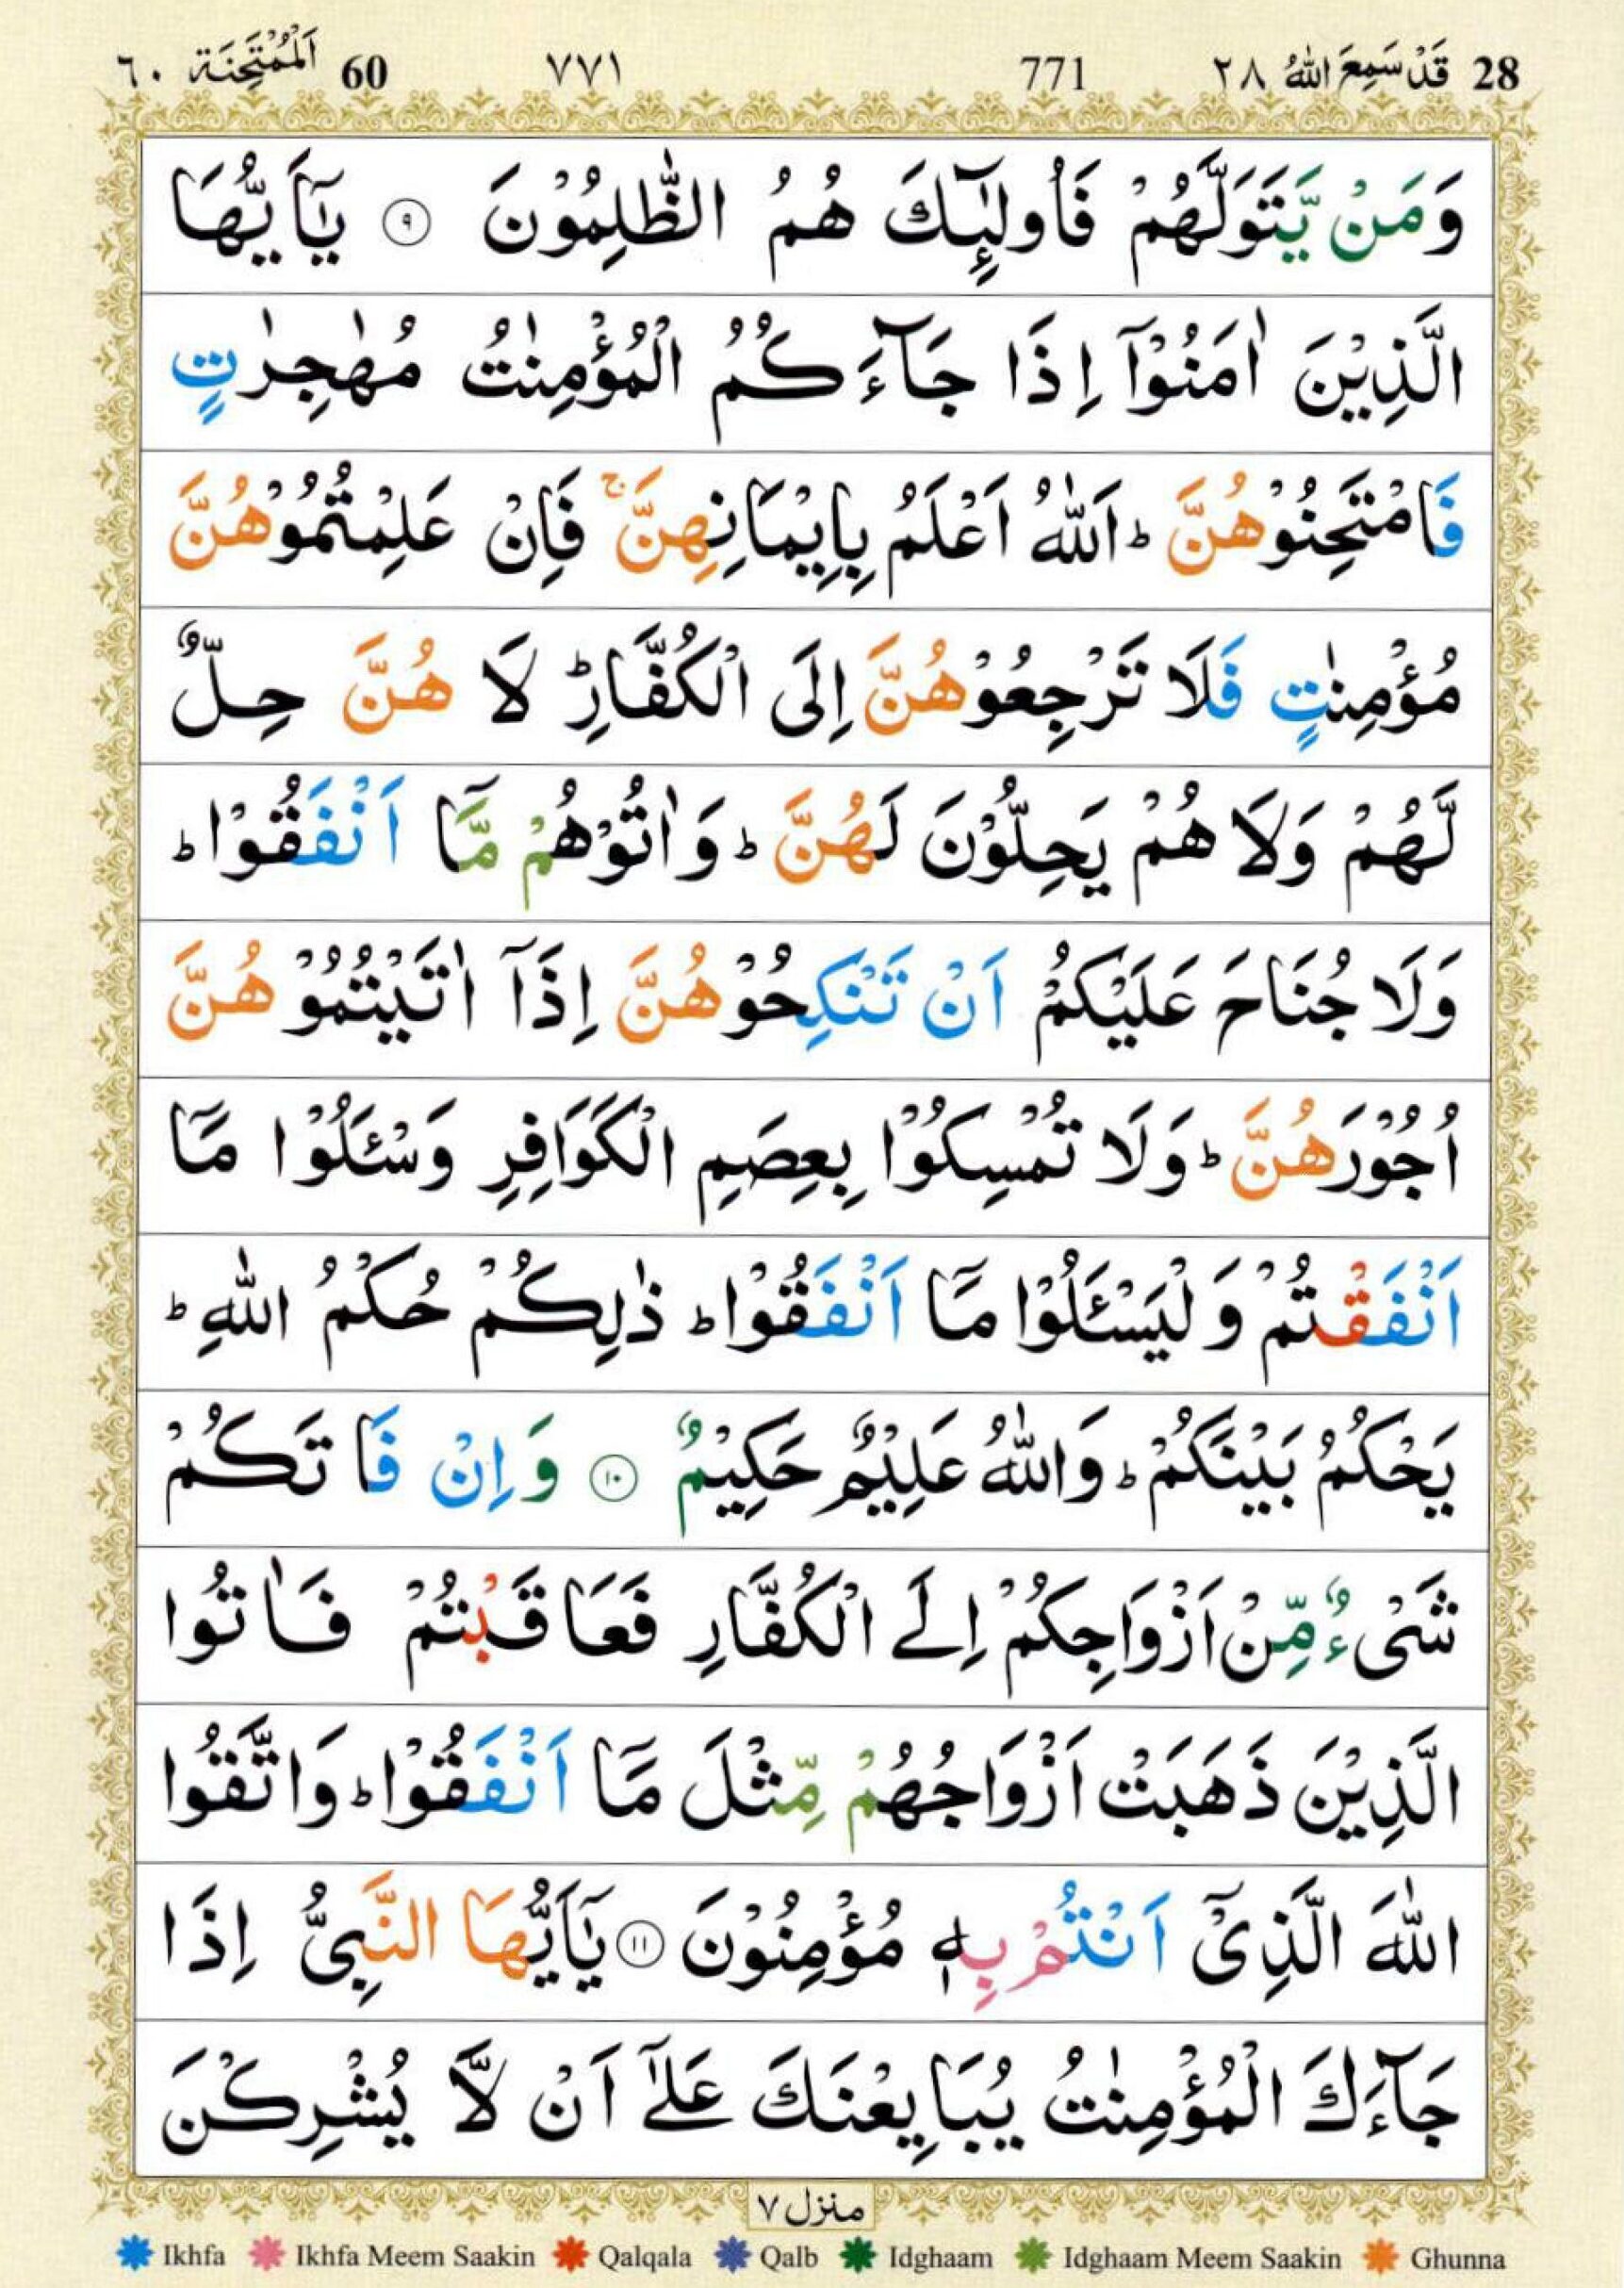 28 قَدْ سَمِعَ اللّٰهُ ٢٨ 771 ٧٧١ 60 اَلْمُمْتَحِنَة ٦٠
وَمَنْ يَّتَوَلَّهُمْ فَاُولٰٓئِكَ هُمُ الظّٰلِمُوْنَ ۹ يٰٓاَيُّهَا
الَّذِيْنَ اٰمَنُوْٓا اِذَا جَآءَكُمُ الْمُؤْمِنٰتُ مُهٰجِرٰتٍ
فَامْتَحِنُوْهُنَّ ؕ اَللّٰهُ اَعْلَمُ بِاِيْمَانِهِنَّ ۚ فَاِنْ عَلِمْتُمُوْهُنَّ
مُؤْمِنٰتٍ فَلَا تَرْجِعُوْهُنَّ اِلَى الْكُفَّارِ ؕ لَا هُنَّ حِلٌّ
لَّهُمْ وَلَا هُمْ يَحِلُّوْنَ لَهُنَّ ؕ وَاٰتُوْهُمْ مَّا اَنْفَقُوْا ؕ
وَلَا جُنَاحَ عَلَيْكُمْ اَنْ تَنْكِحُوْهُنَّ اِذَآ اٰتَيْتُمُوْهُنَّ
اُجُوْرَهُنَّ ؕ وَلَا تُمْسِكُوْا بِعِصَمِ الْكَوَافِرِ وَسْئَلُوْا مَآ
اَنْفَقْتُمْ وَلْيَسْئَلُوْا مَآ اَنْفَقُوْا ؕ ذٰلِكُمْ حُكْمُ اللّٰهِ ؕ
يَحْكُمُ بَيْنَكُمْ ؕ وَاللّٰهُ عَلِيْمٌ حَكِيْمٌ ۱۰ وَاِنْ فَاتَكُمْ
شَىْءٌ مِّنْ اَزْوَاجِكُمْ اِلَى الْكُفَّارِ فَعَاقَبْتُمْ فَاٰتُوا
الَّذِيْنَ ذَهَبَتْ اَزْوَاجُهُمْ مِّثْلَ مَآ اَنْفَقُوْا ؕ وَاتَّقُوا
اللّٰهَ الَّذِىْٓ اَنْتُمْ بِهٖ مُؤْمِنُوْنَ ۱۱ يٰٓاَيُّهَا النَّبِىُّ اِذَا
جَآءَكَ الْمُؤْمِنٰتُ يُبَايِعْنَكَ عَلٰٓى اَنْ لَّا يُشْرِكْنَ
منزل ٧
Ikhfa Ikhfa Meem Saakin Qalqala Qalb Idghaam Idghaam Meem Saakin Ghunna